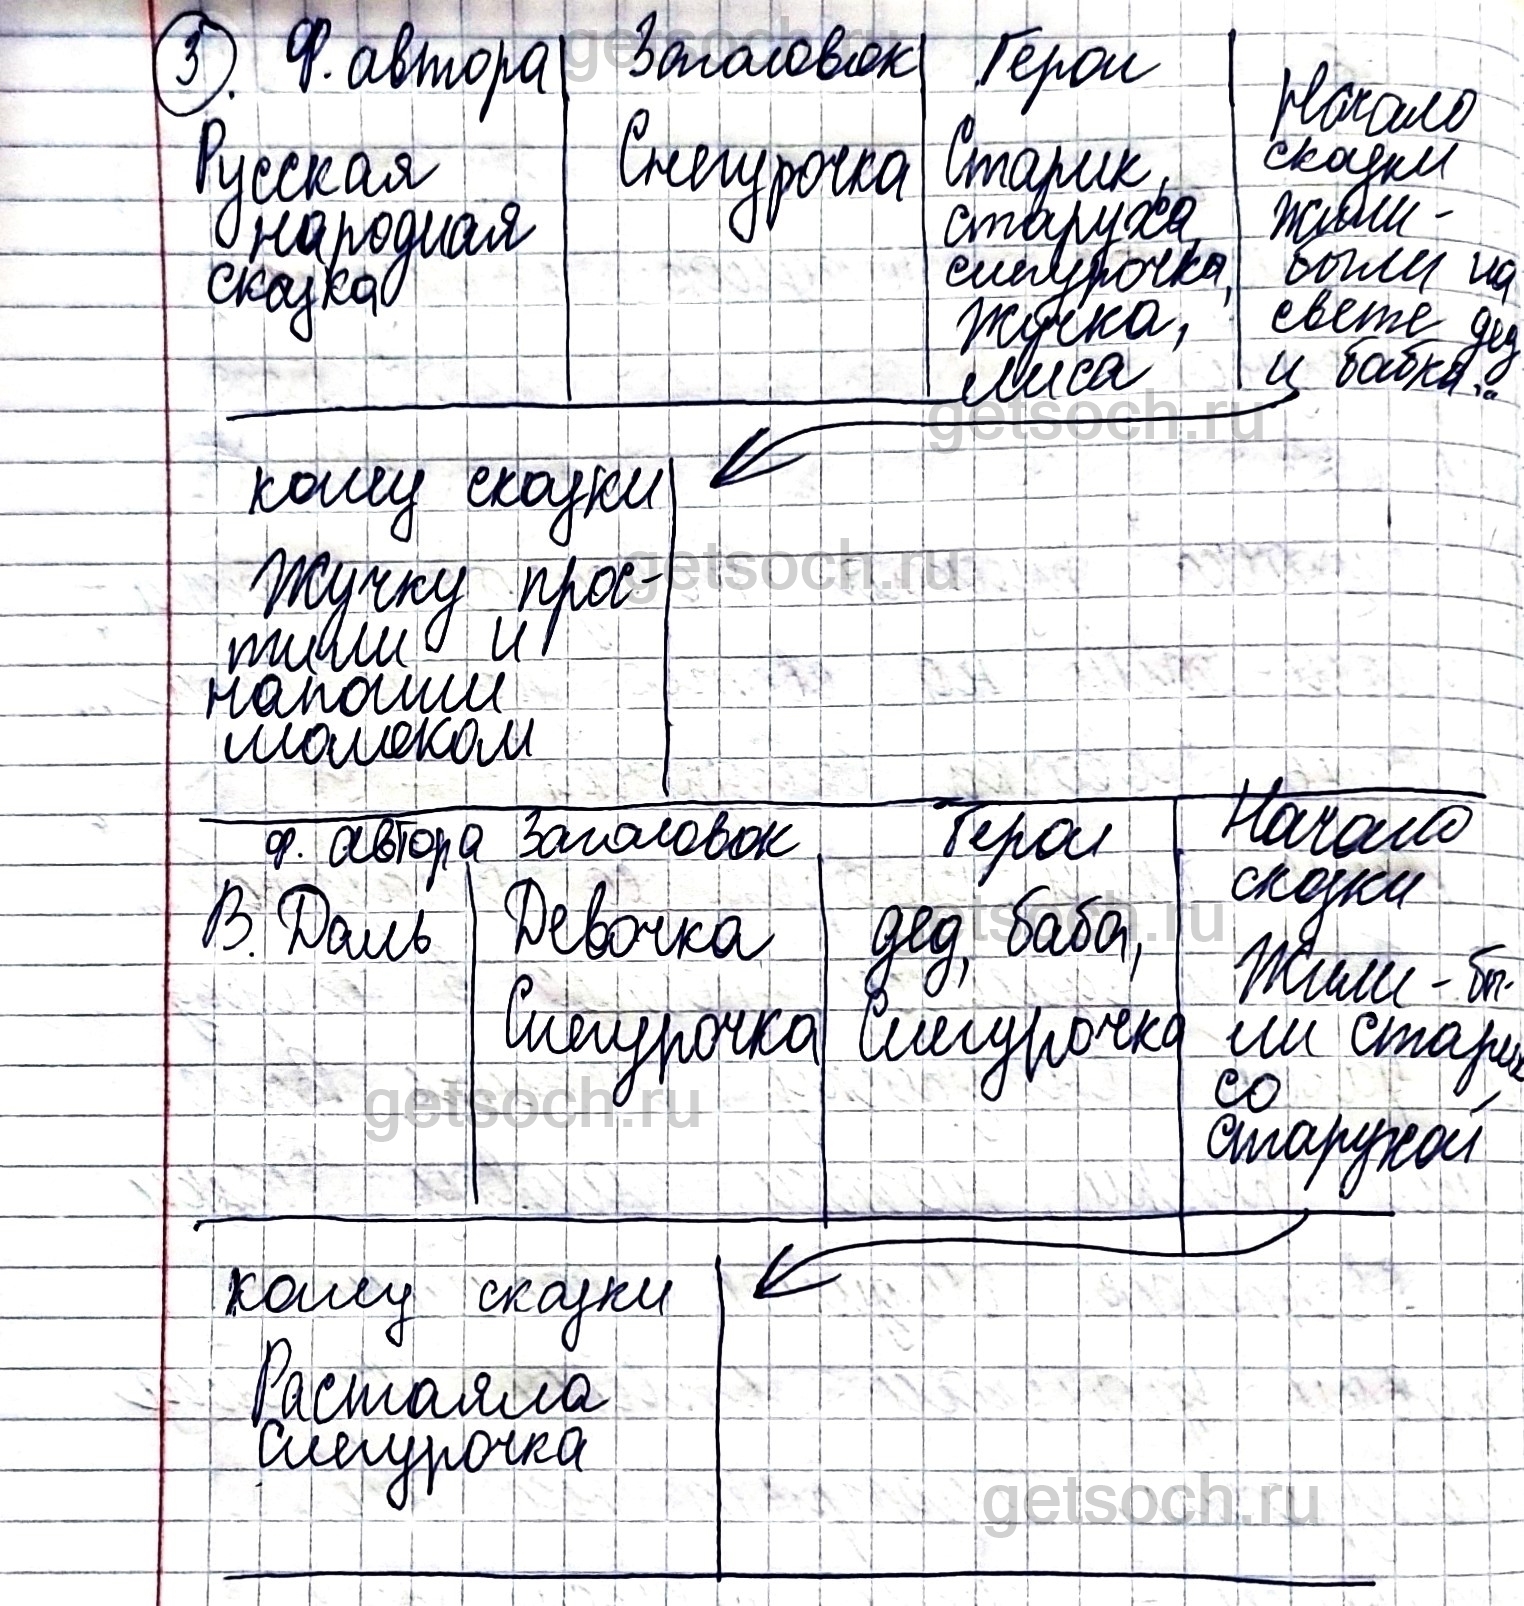 3. Ф. автора Заголовок Герои Начало сказки
Русская народная сказка
Снегурочка
Старик,
старуха,
снегурочка,
Жучка,
лиса
Жили-
были на
свете дед
и бабка...
конец сказки
Жучку прос-
тили и
напоили
молоком
Ф. автора Заголовок Герои Начало сказки
В. Даль
Девочка
Снегурочка
дед, баба,
Снегурочка
Жили-бы-
ли старик
со
старухой
конец сказки
Растаяла
Снегурочка
getsoch.ru
getsoch.ru
getsoch.ru
getsoch.ru
getsoch.ru
getsoch.ru